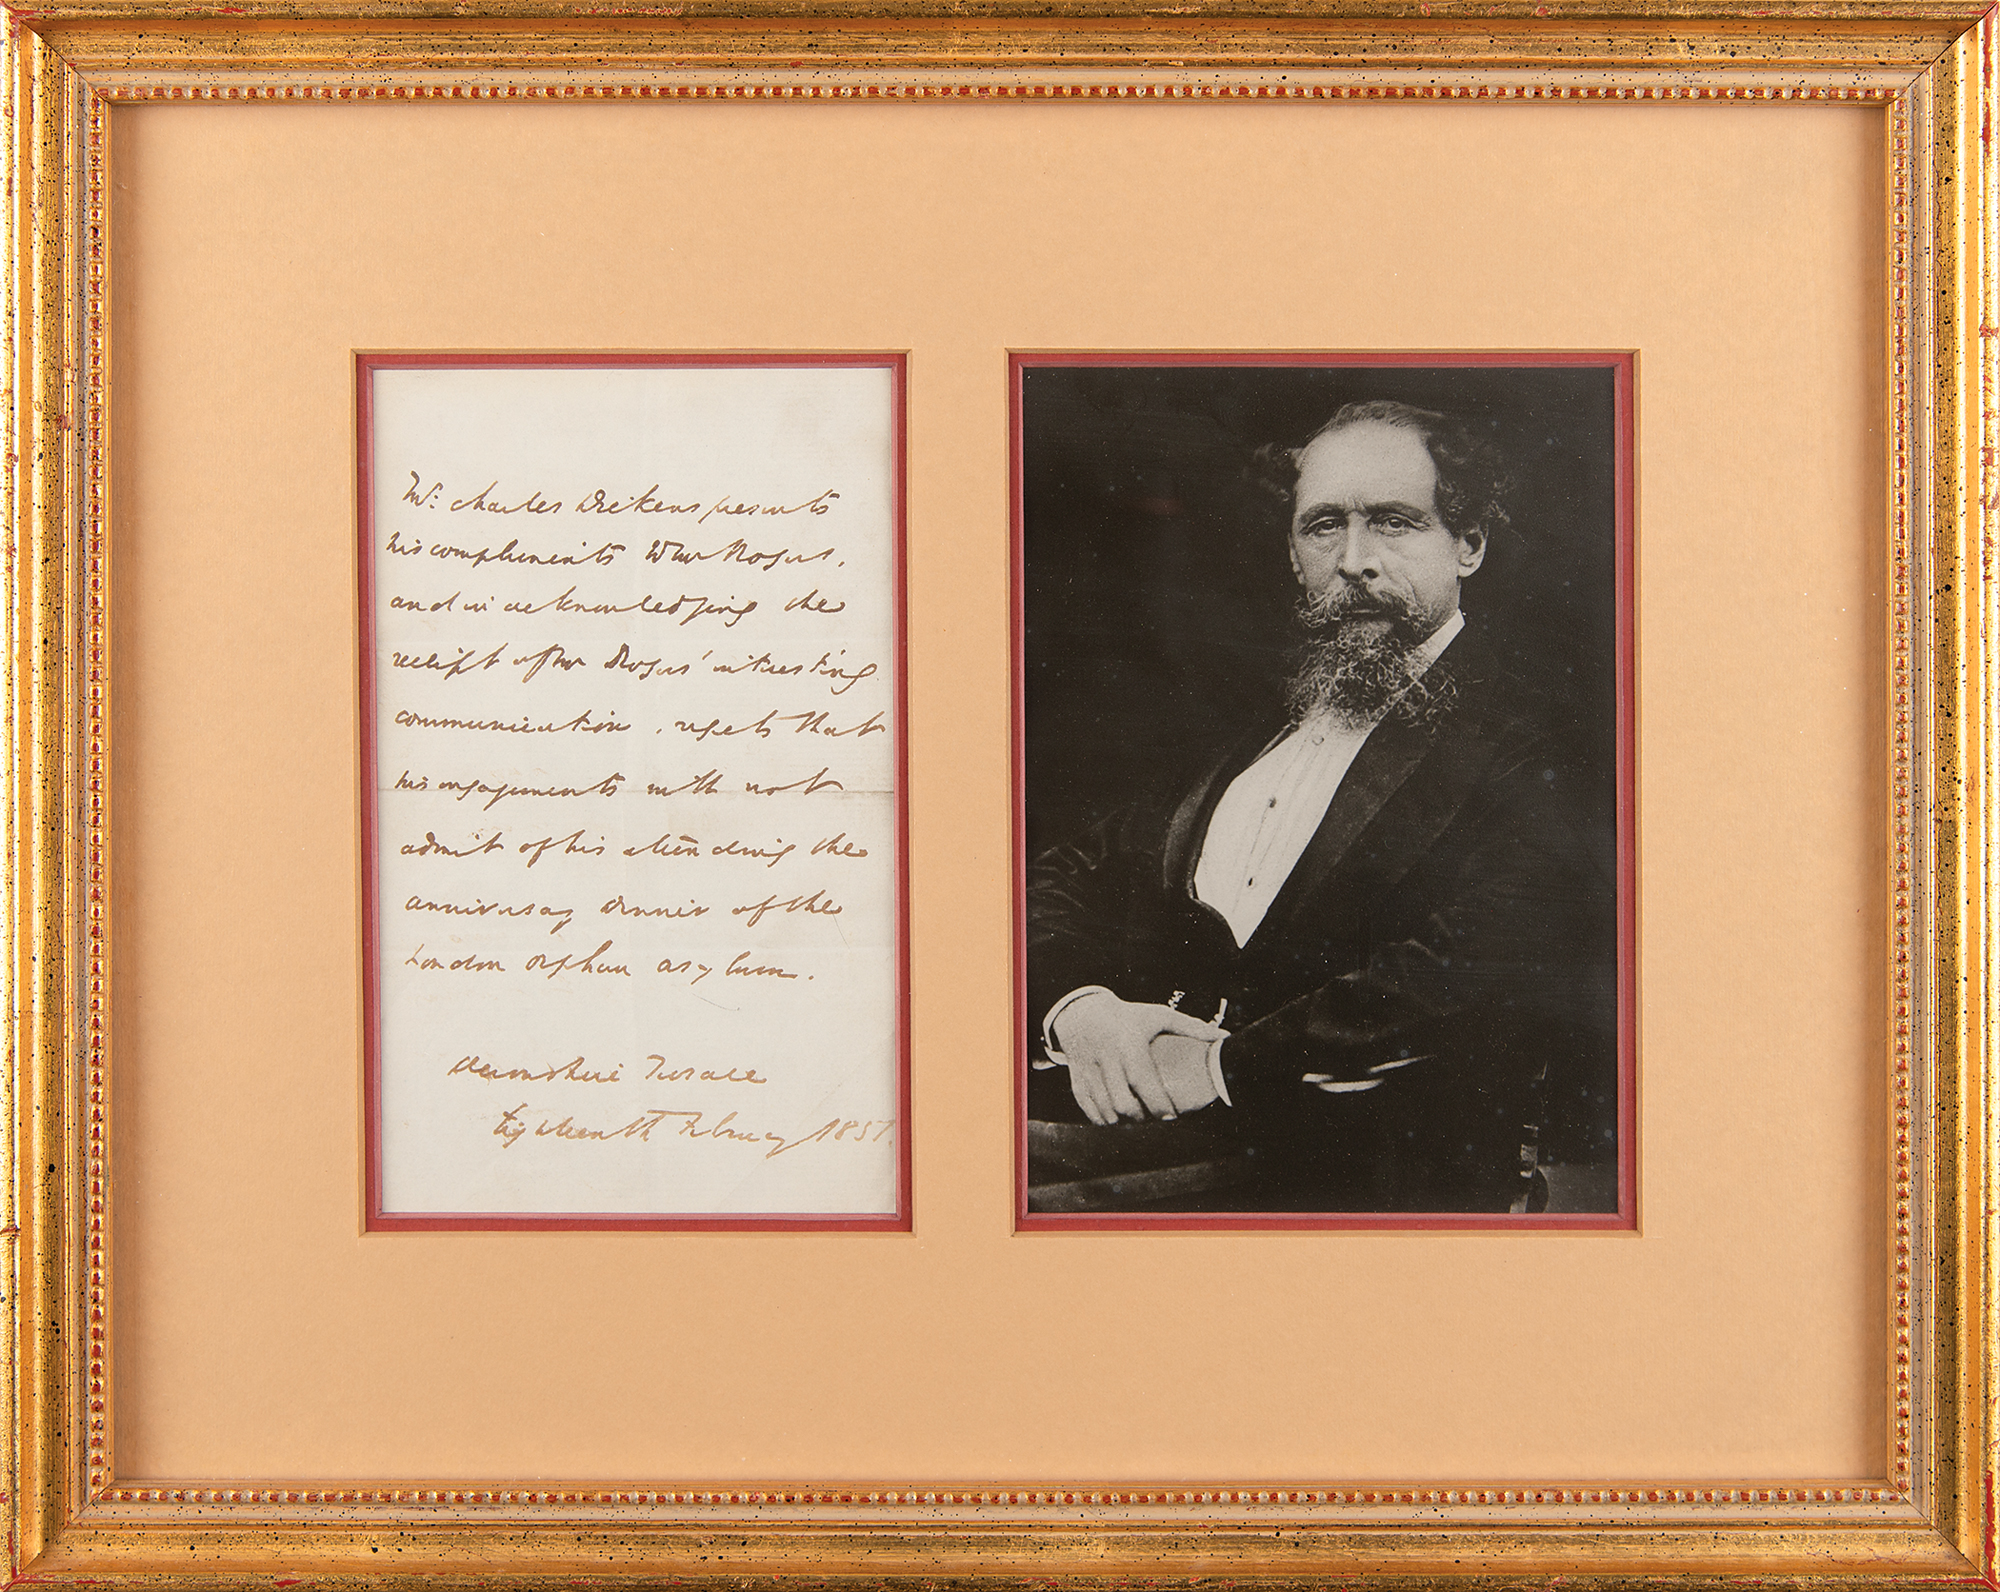 Mr. Charles Dickens presents
his compliments to Mr Rogers,
and in acknowledging the
receipt of Mr Rogers' interesting
communication, regrets that
his engagements will not
admit of his attending the
anniversary dinner of the
London Orphan Asylum.
Devonshire Terrace
Eighteenth February 1851.